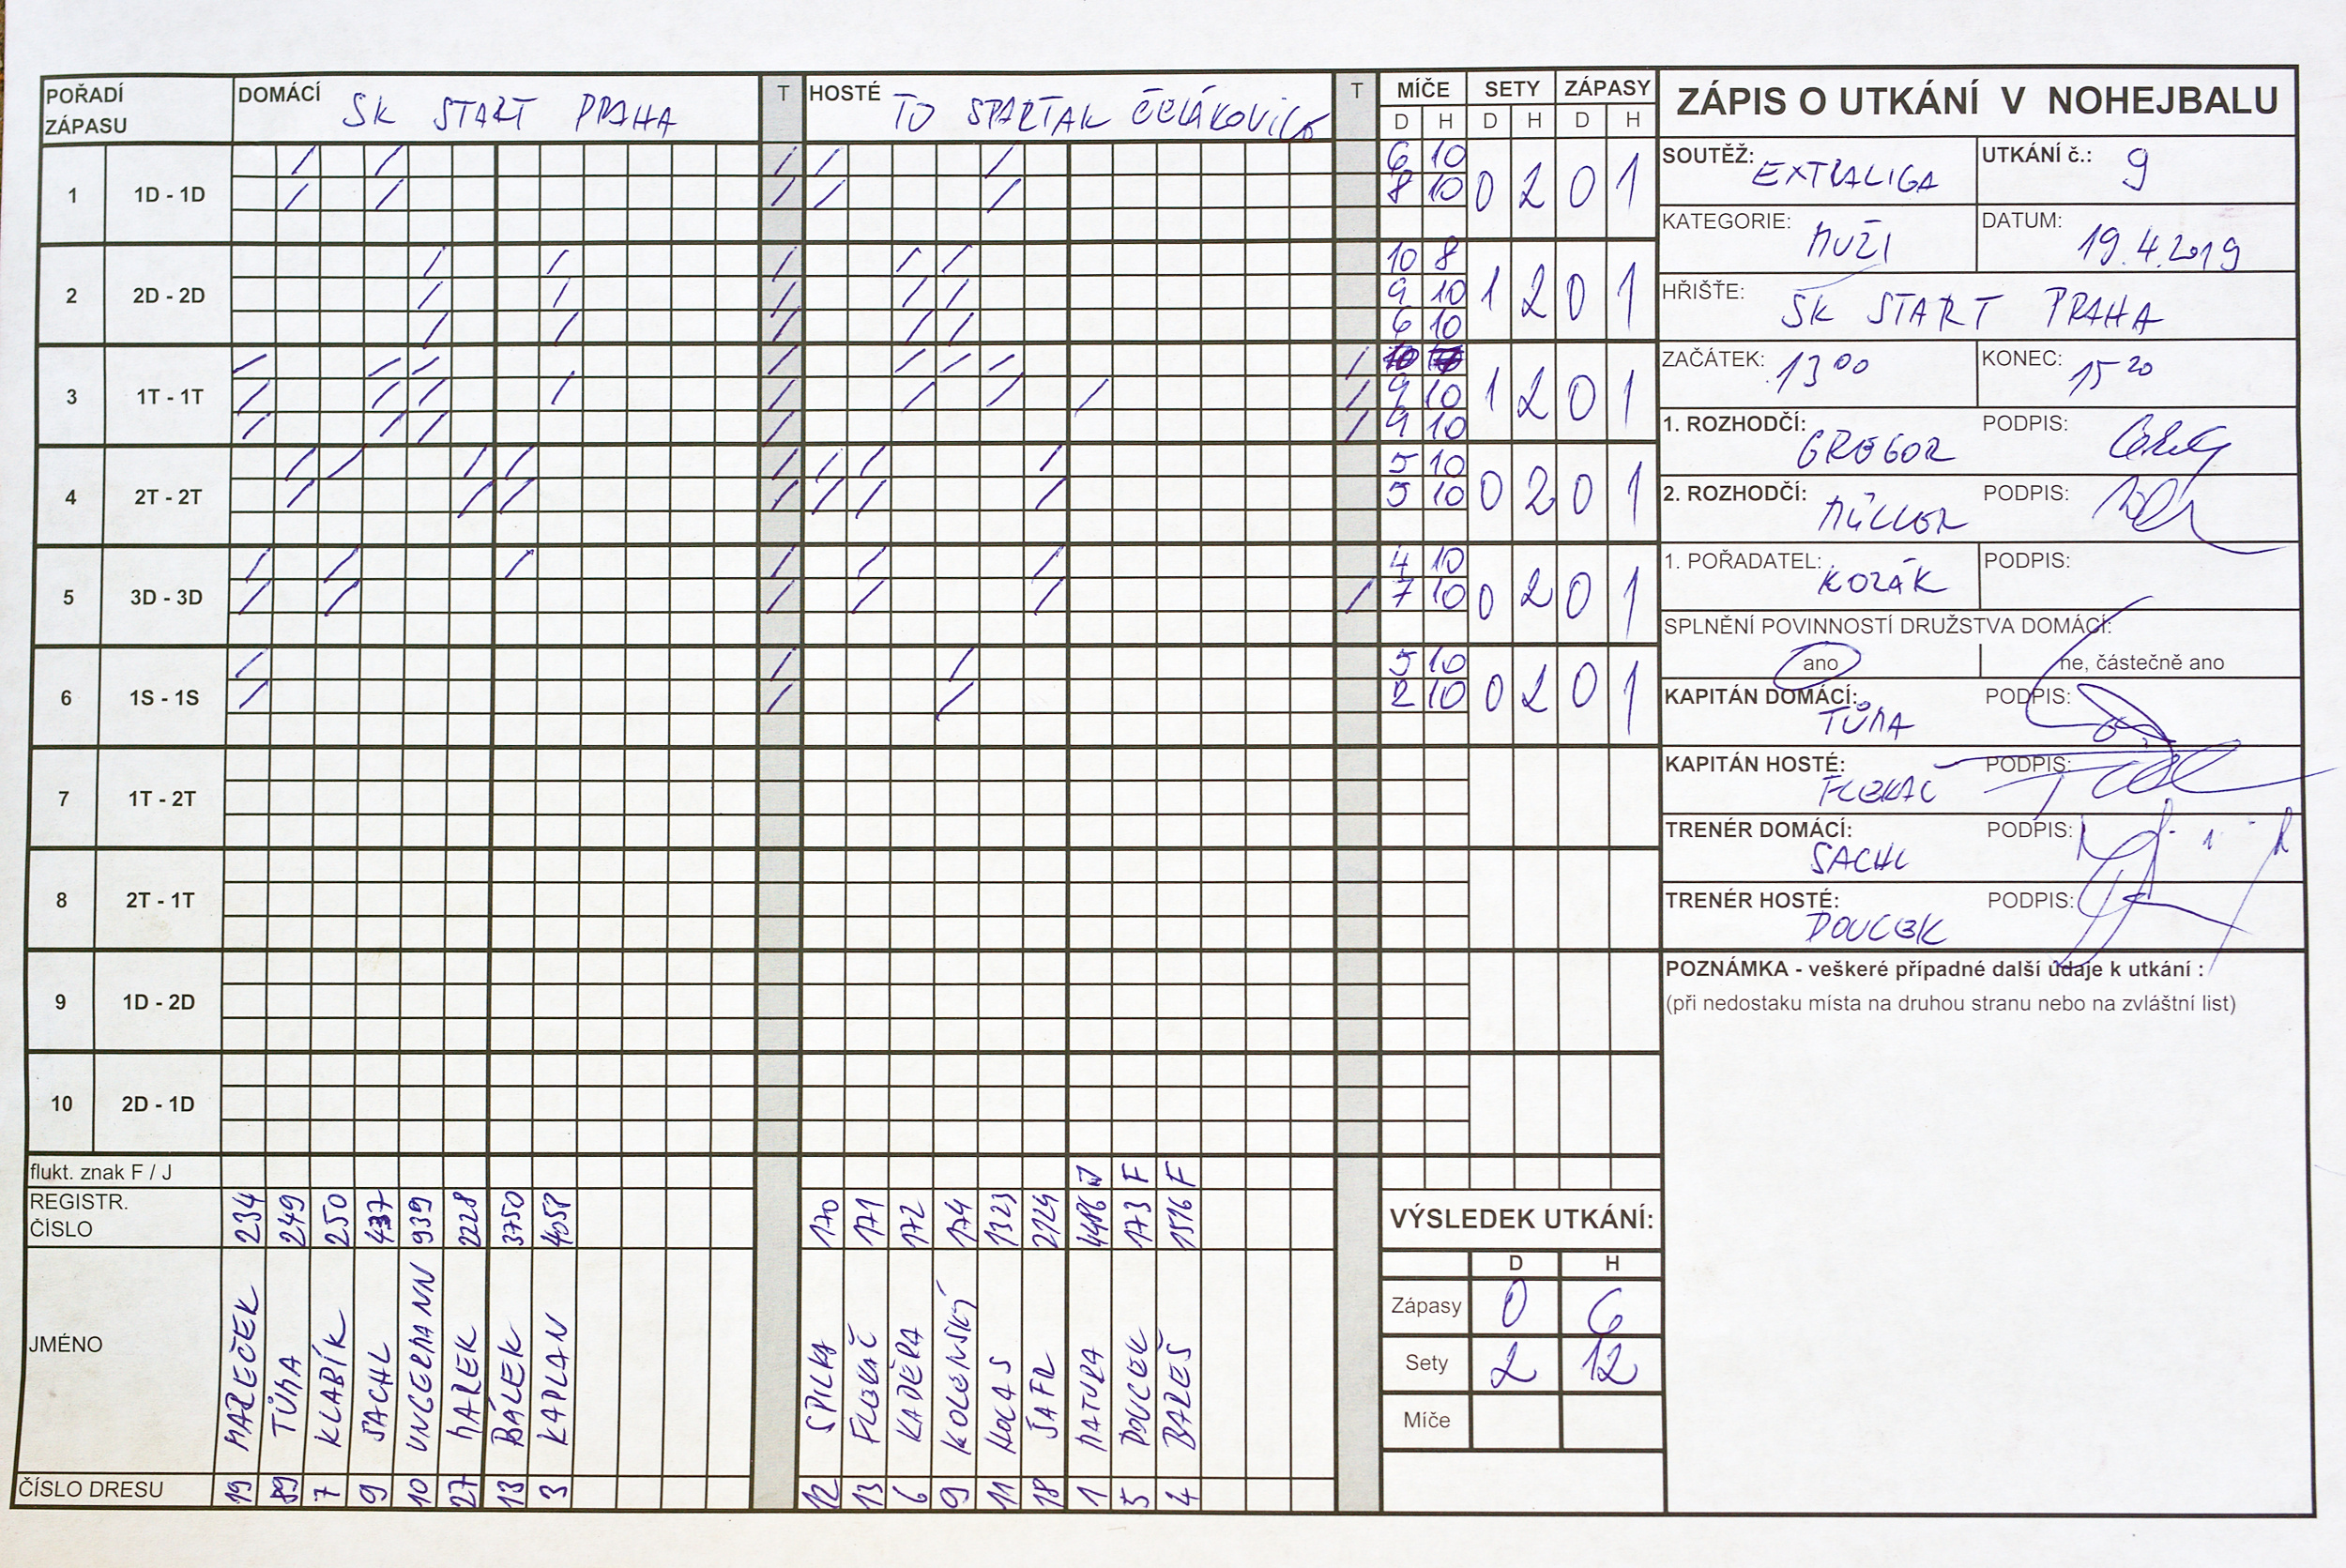 POŘADÍ ZÁPASU DOMÁCÍ SK START PRAHA T HOSTÉ TJ SPARTAK ČELÁKOVICE T MÍČE SETY ZÁPASY
D H D H D H
1 1D - 1D 6 10 0 2 0 1
8 10
2 2D - 2D 10 8 1 2 0 1
9 10
6 10
3 1T - 1T 1 2 0 1
9 10
9 10
4 2T - 2T 5 10 0 2 0 1
5 10
5 3D - 3D 4 10 0 2 0 1
7 10
6 1S - 1S 5 10 0 2 0 1
2 10
7 1T - 2T
8 2T - 1T
9 1D - 2D
10 2D - 1D
flukt. znak F / J J F F
REGISTR. ČÍSLO 234 249 250 437 939 2228 3750 4058 170 171 172 174 1323 2124 4486 173 1516
JMÉNO MAREČEK TŮMA KLABÍK SACHL UNGERMANN MAREK BÁLEK KAPLAN SPILKA FLEKAČ KADĚRA KOLENSKÝ HOLAS ŠAFR MATURA DOUCEK BAREŠ
ČÍSLO DRESU 19 89 7 9 10 27 13 3 12 13 6 9 11 18 1 5 4
VÝSLEDEK UTKÁNÍ:
D H
Zápasy 0 6
Sety 2 12
Míče
ZÁPIS O UTKÁNÍ V NOHEJBALU
SOUTĚŽ: EXTRALIGA UTKÁNÍ č.: 9
KATEGORIE: MUŽI DATUM: 19.4.2019
HŘIŠTE: SK START PRAHA
ZAČÁTEK: 13 00 KONEC: 15 20
1. ROZHODČÍ: GREGOR PODPIS:
2. ROZHODČÍ: MÜLLER PODPIS:
1. POŘADATEL: KOZÁK PODPIS:
SPLNĚNÍ POVINNOSTÍ DRUŽSTVA DOMÁCÍ:
ano ne, částečně ano
KAPITÁN DOMÁCÍ: TŮMA PODPIS:
KAPITÁN HOSTÉ: FLEKAČ PODPIS:
TRENÉR DOMÁCÍ: SACHL PODPIS:
TRENÉR HOSTÉ: DOUCEK PODPIS:
POZNÁMKA - veškeré případné další údaje k utkání :
(při nedostaku místa na druhou stranu nebo na zvláštní list)